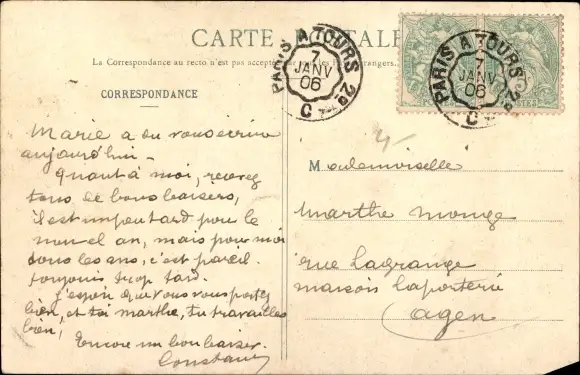 CARTE POSTALE
La Correspondance au recto n'est pas acceptée par les étrangers.
CORRESPONDANCE
PARIS A TOURS 2º
7
JANV
06
C
PARIS A TOURS 2º
7
JANV
06
C
POSTES
Marie a du vous écrire
aujourd'hui -
Quant à moi, recevez
tous de bons baisers,
il est un peu tard pour le
nouvel an, mais pour moi
tous les ans, c'est pareil.
toujours trop tard.
J'espère que vous vous portez
bien, et toi marthe, tu travailles
bien!
Encore un bon baiser.
Mademoiselle
Marthe Monge
rue Lagrange
maison Laporterie
Agen